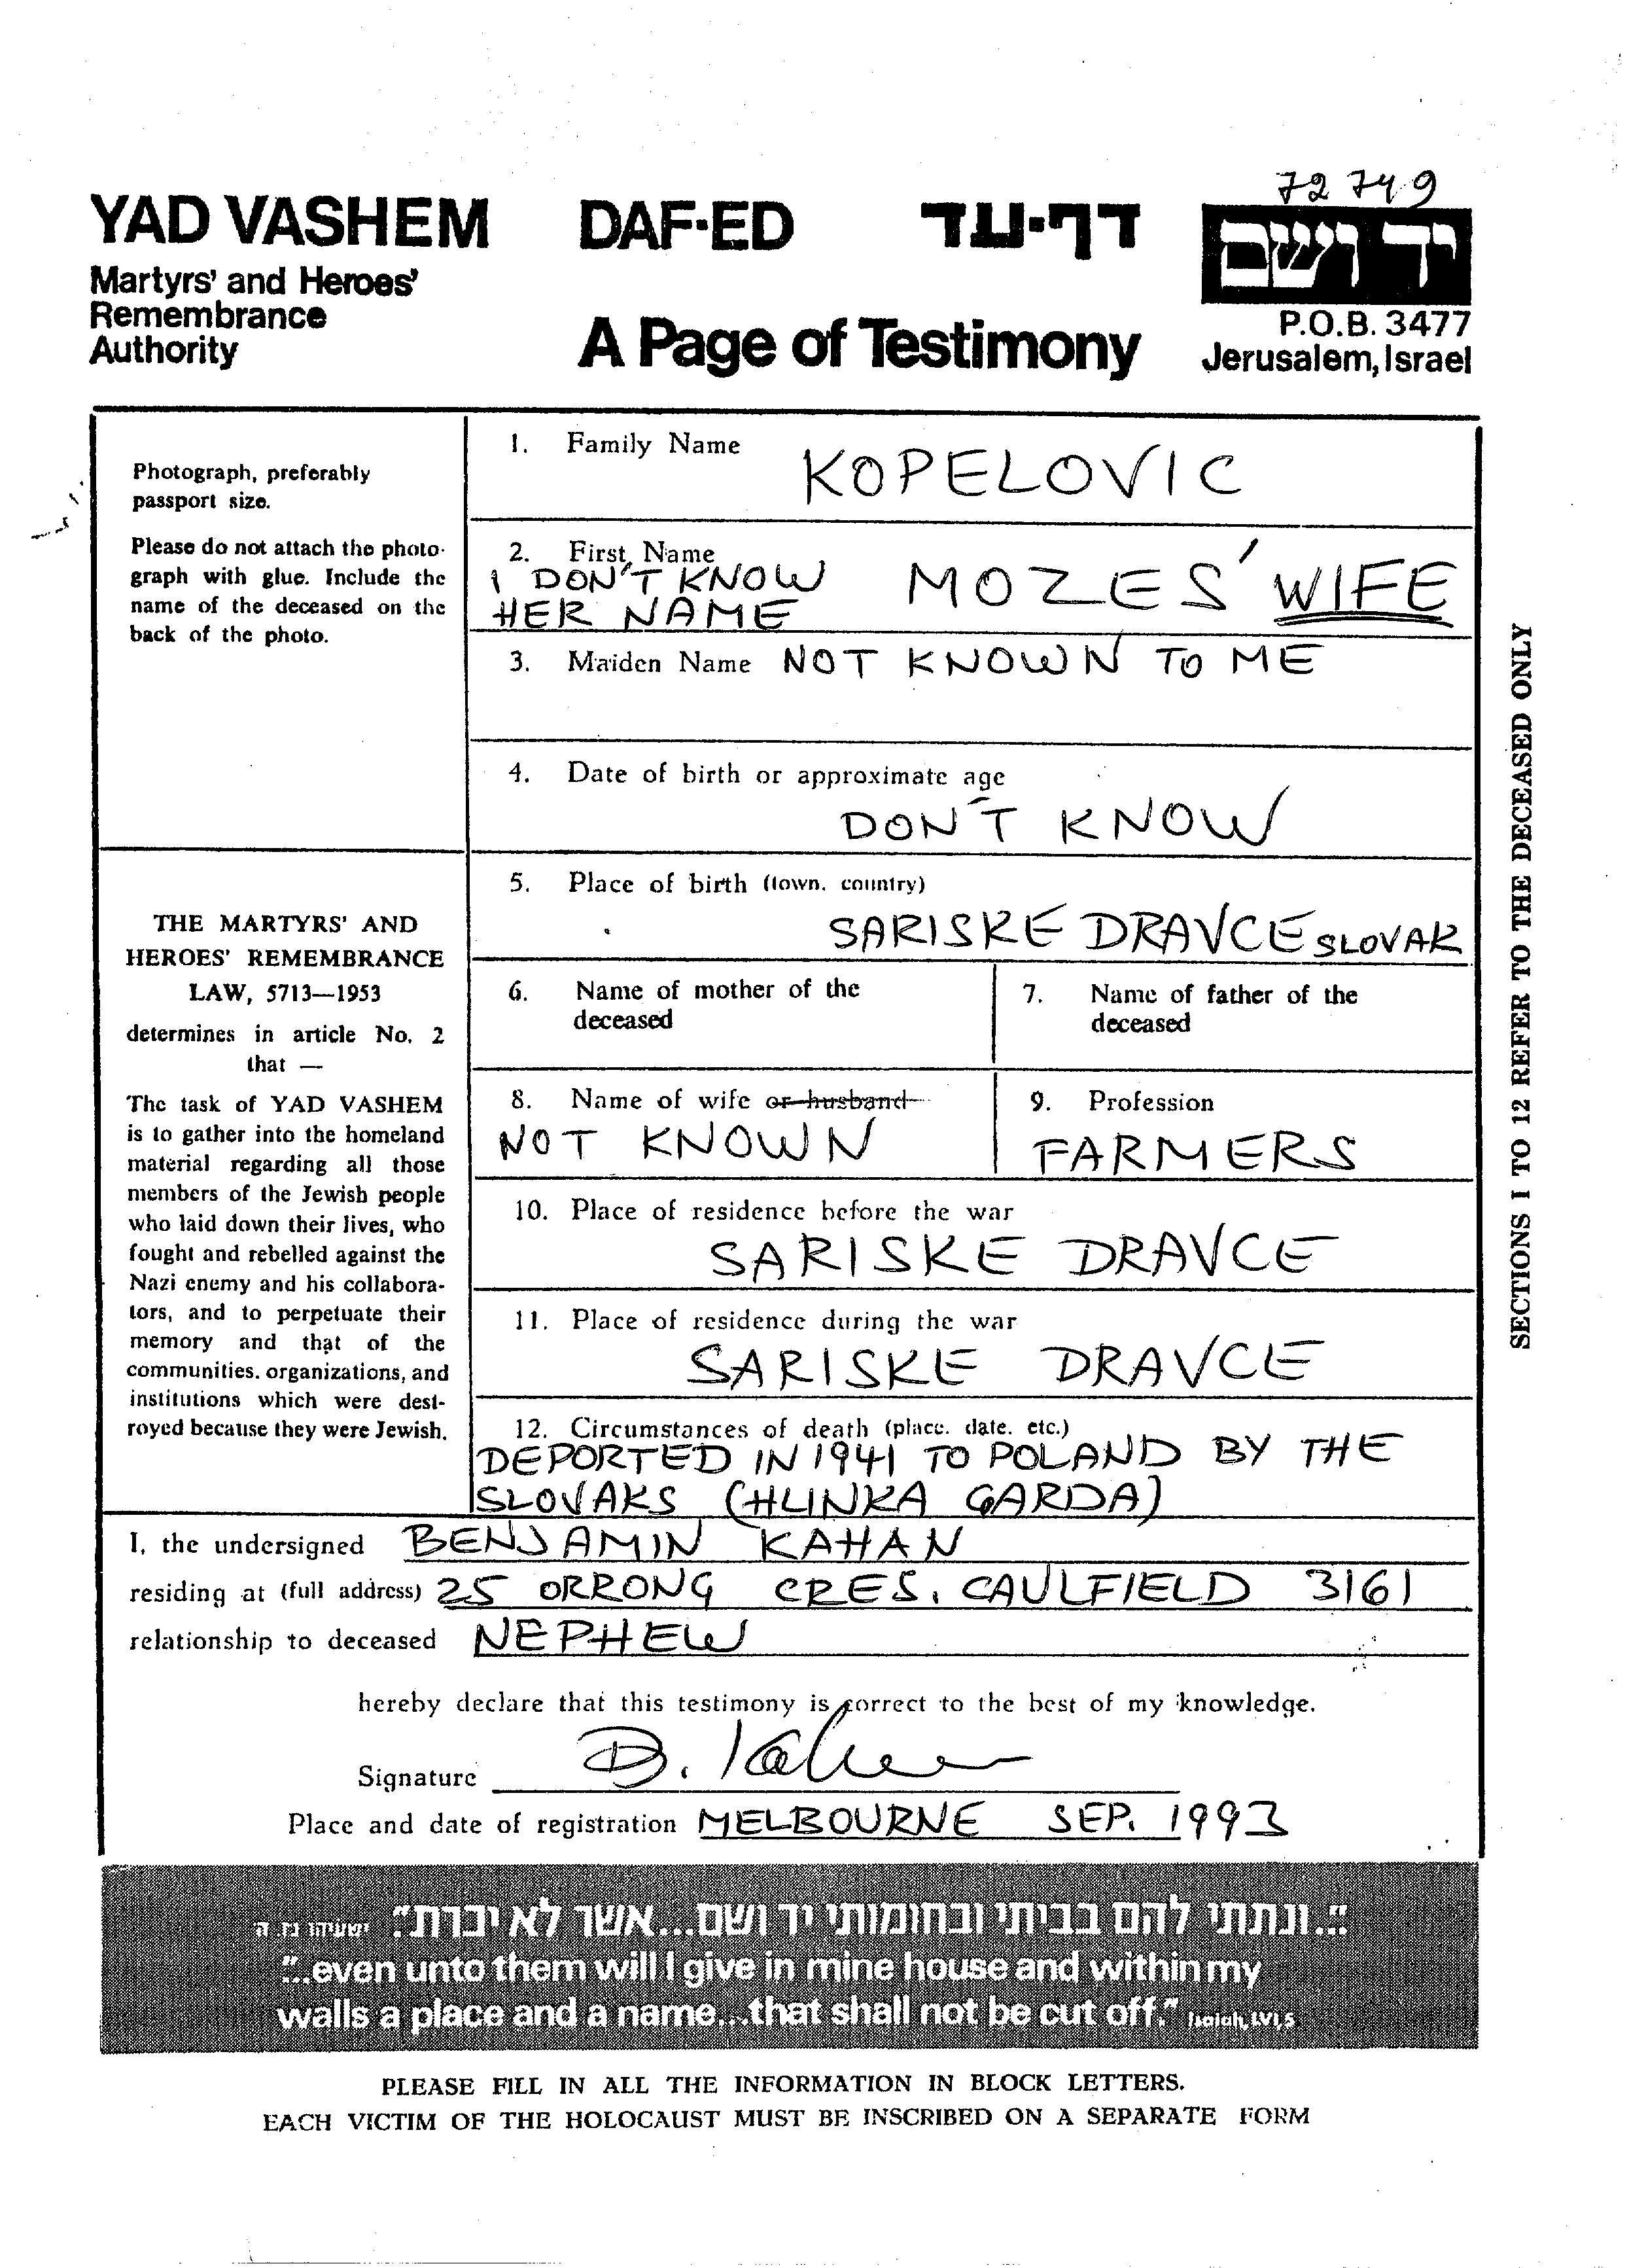 72 749
YAD VASHEM DAF-ED דף-עד יד ושם
Martyrs' and Heroes'
Remembrance
Authority
A Page of Testimony
P.O.B. 3477
Jerusalem, Israel
Photograph, preferably
passport size.
Please do not attach the photo-
graph with glue. Include the
name of the deceased on the
back of the photo.
THE MARTYRS' AND
HEROES' REMEMBRANCE
LAW, 5713—1953
determines in article No. 2
that —
The task of YAD VASHEM
is to gather into the homeland
material regarding all those
members of the Jewish people
who laid down their lives, who
fought and rebelled against the
Nazi enemy and his collabora-
tors, and to perpetuate their
memory and that of the
communities, organizations, and
institutions which were dest-
royed because they were Jewish.
1. Family Name KOPELOVIC
2. First Name
I DON'T KNOW MOZES' WIFE
HER NAME
3. Maiden Name NOT KNOWN TO ME
4. Date of birth or approximate age
DON'T KNOW
5. Place of birth (town, country)
SARISKE DRAVCE SLOVAK
6. Name of mother of the
deceased
7. Name of father of the
deceased
8. Name of wife or husband
NOT KNOWN
9. Profession
FARMERS
10. Place of residence before the war
SARISKE DRAVCE
11. Place of residence during the war
SARISKE DRAVCE
12. Circumstances of death (place, date, etc.)
DEPORTED IN 1941 TO POLAND BY THE
SLOVAKS (HLINKA GARDA)
SECTIONS 1 TO 12 REFER TO THE DECEASED ONLY
I, the undersigned BENJAMIN KAHAN
residing at (full address) 25 ORRONG CRES. CAULFIELD 3161
relationship to deceased NEPHEW
hereby declare that this testimony is correct to the best of my knowledge.
Signature B. Kahan
Place and date of registration MELBOURNE SEP. 1993
"...ונתתי להם בביתי ובחומותי יד ושם...אשר לא יכרת." ישעיהו נו, ה
"...even unto them will I give in mine house and within my
walls a place and a name...that shall not be cut off." Isaiah, LVI, 5
PLEASE FILL IN ALL THE INFORMATION IN BLOCK LETTERS.
EACH VICTIM OF THE HOLOCAUST MUST BE INSCRIBED ON A SEPARATE FORM